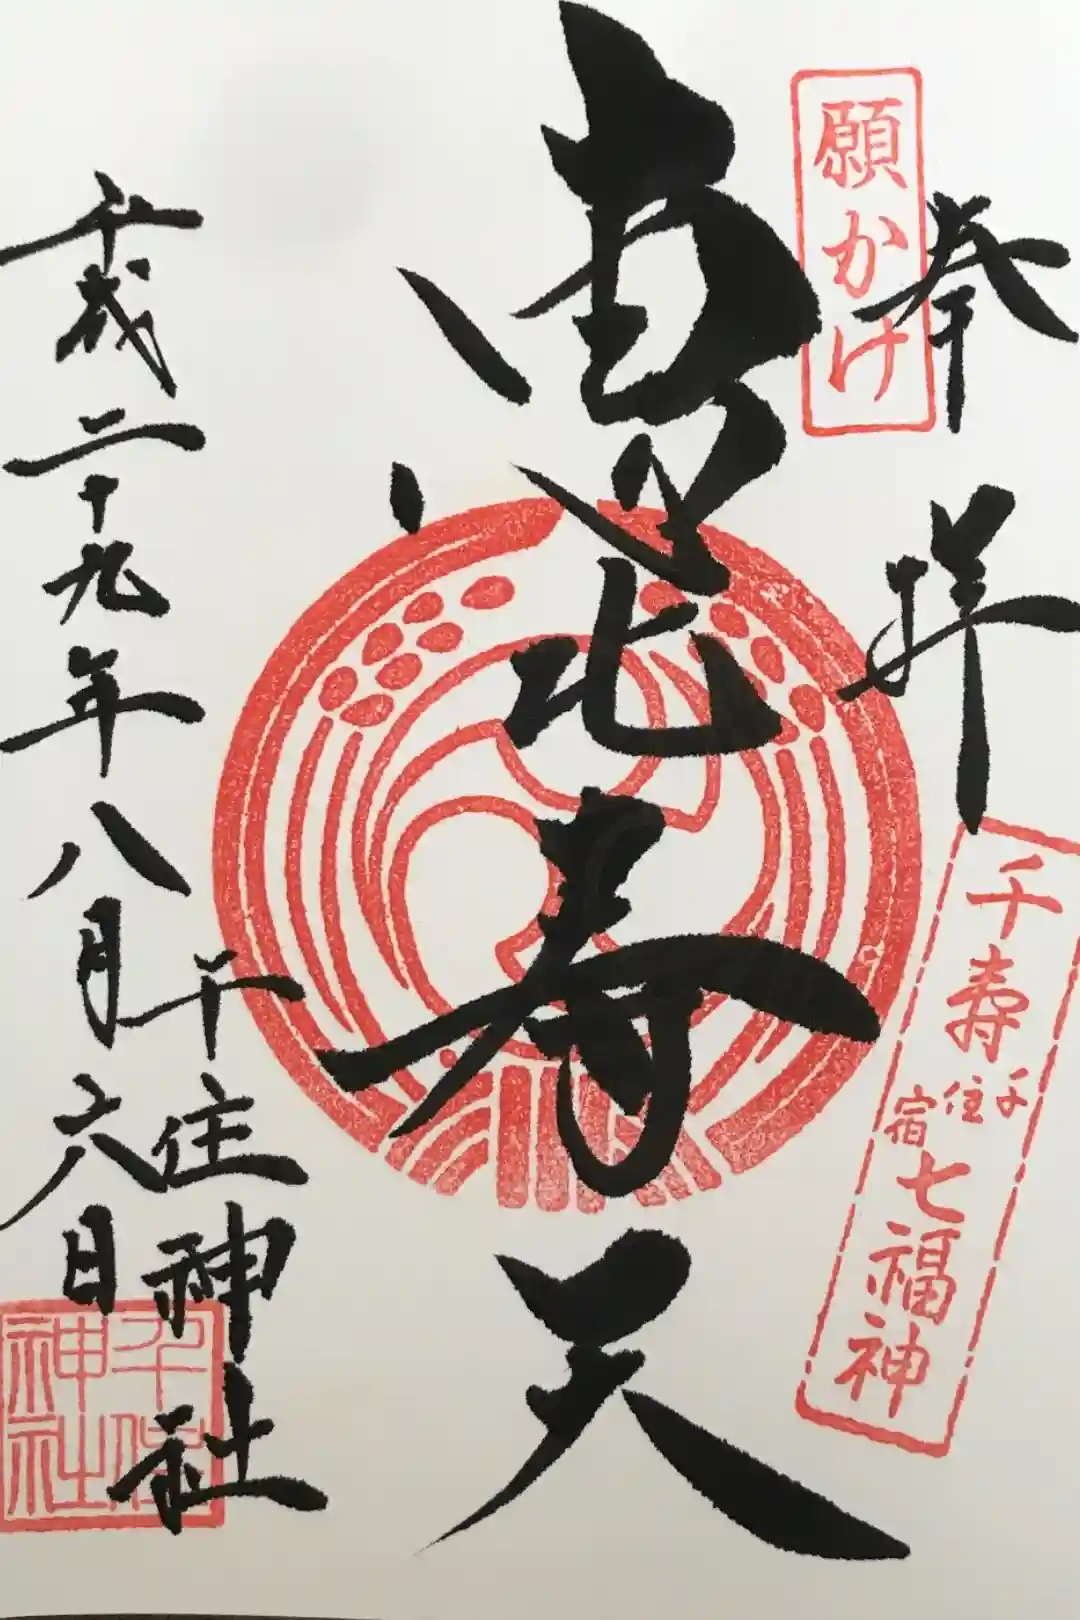 奉拝
願かけ
千寿
千住宿
七福神
恵比寿天
千住神社
平成二十九年八月六日
千住神社